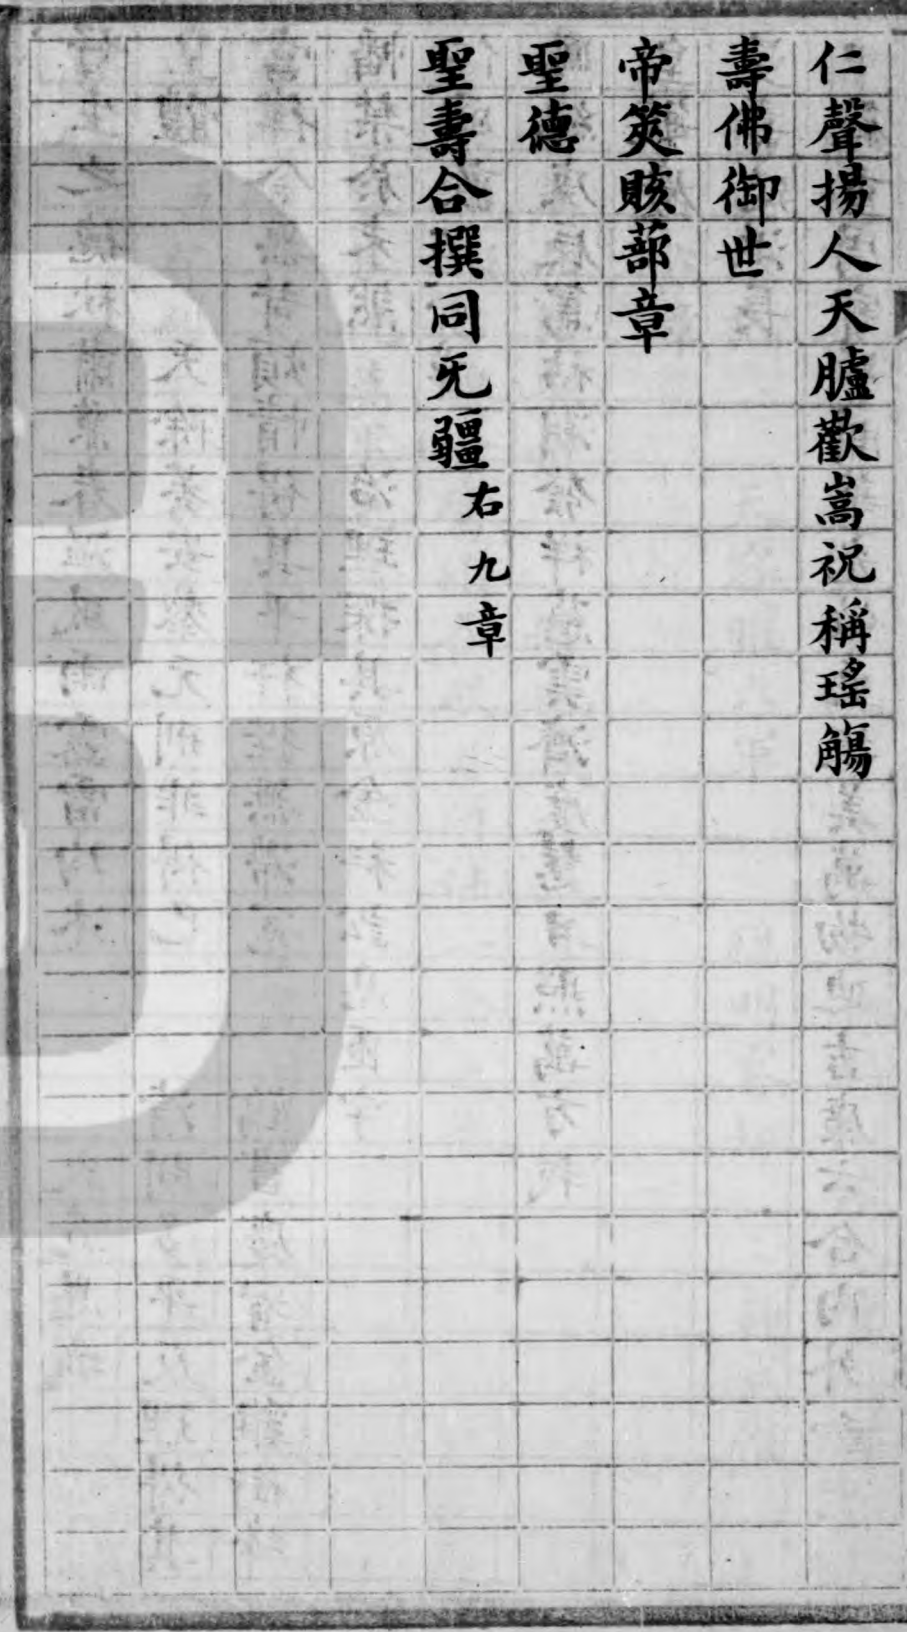 仁聲揚人天臚歡嵩祝稱瑤觴
壽佛御世
帝筴賅蔀章
聖德
聖壽合撰同旡疆右九章